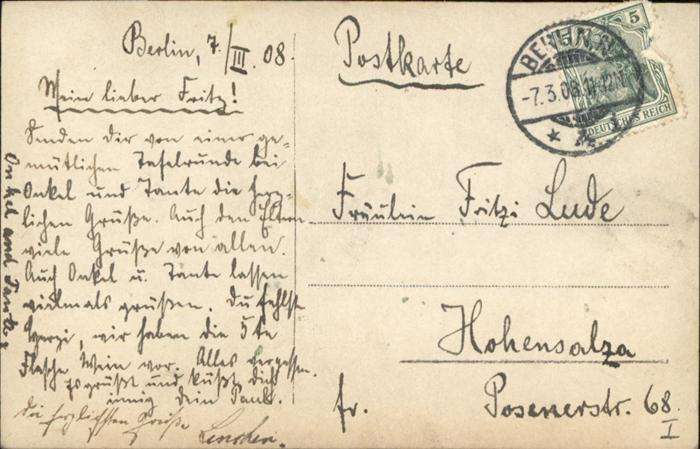 Berlin, 7./III. 08.
Mein lieber Fritz!
Senden Dir von einer ge-
mütlichen Tafelrunde bei
Onkel und Tante die herz-
lichen Grüße. Auch den Eltern
viele Grüße von allen.
Auch Onkel u. Tante lassen
vielmals grüßen. Du fehlst
wir haben die 5te
Flasche Wein vor. Alles vergessen.
Es grüßt und küßt Dich
innig Dein
die herzlichsten Grüße
Lenchen.
Onkel und Tante
Postkarte
BERLIN
-7.3.08
5
DEUTSCHES REICH
Fräulein Fritzi Lude
Hohensalza
fr. Posenerstr. 68.
I